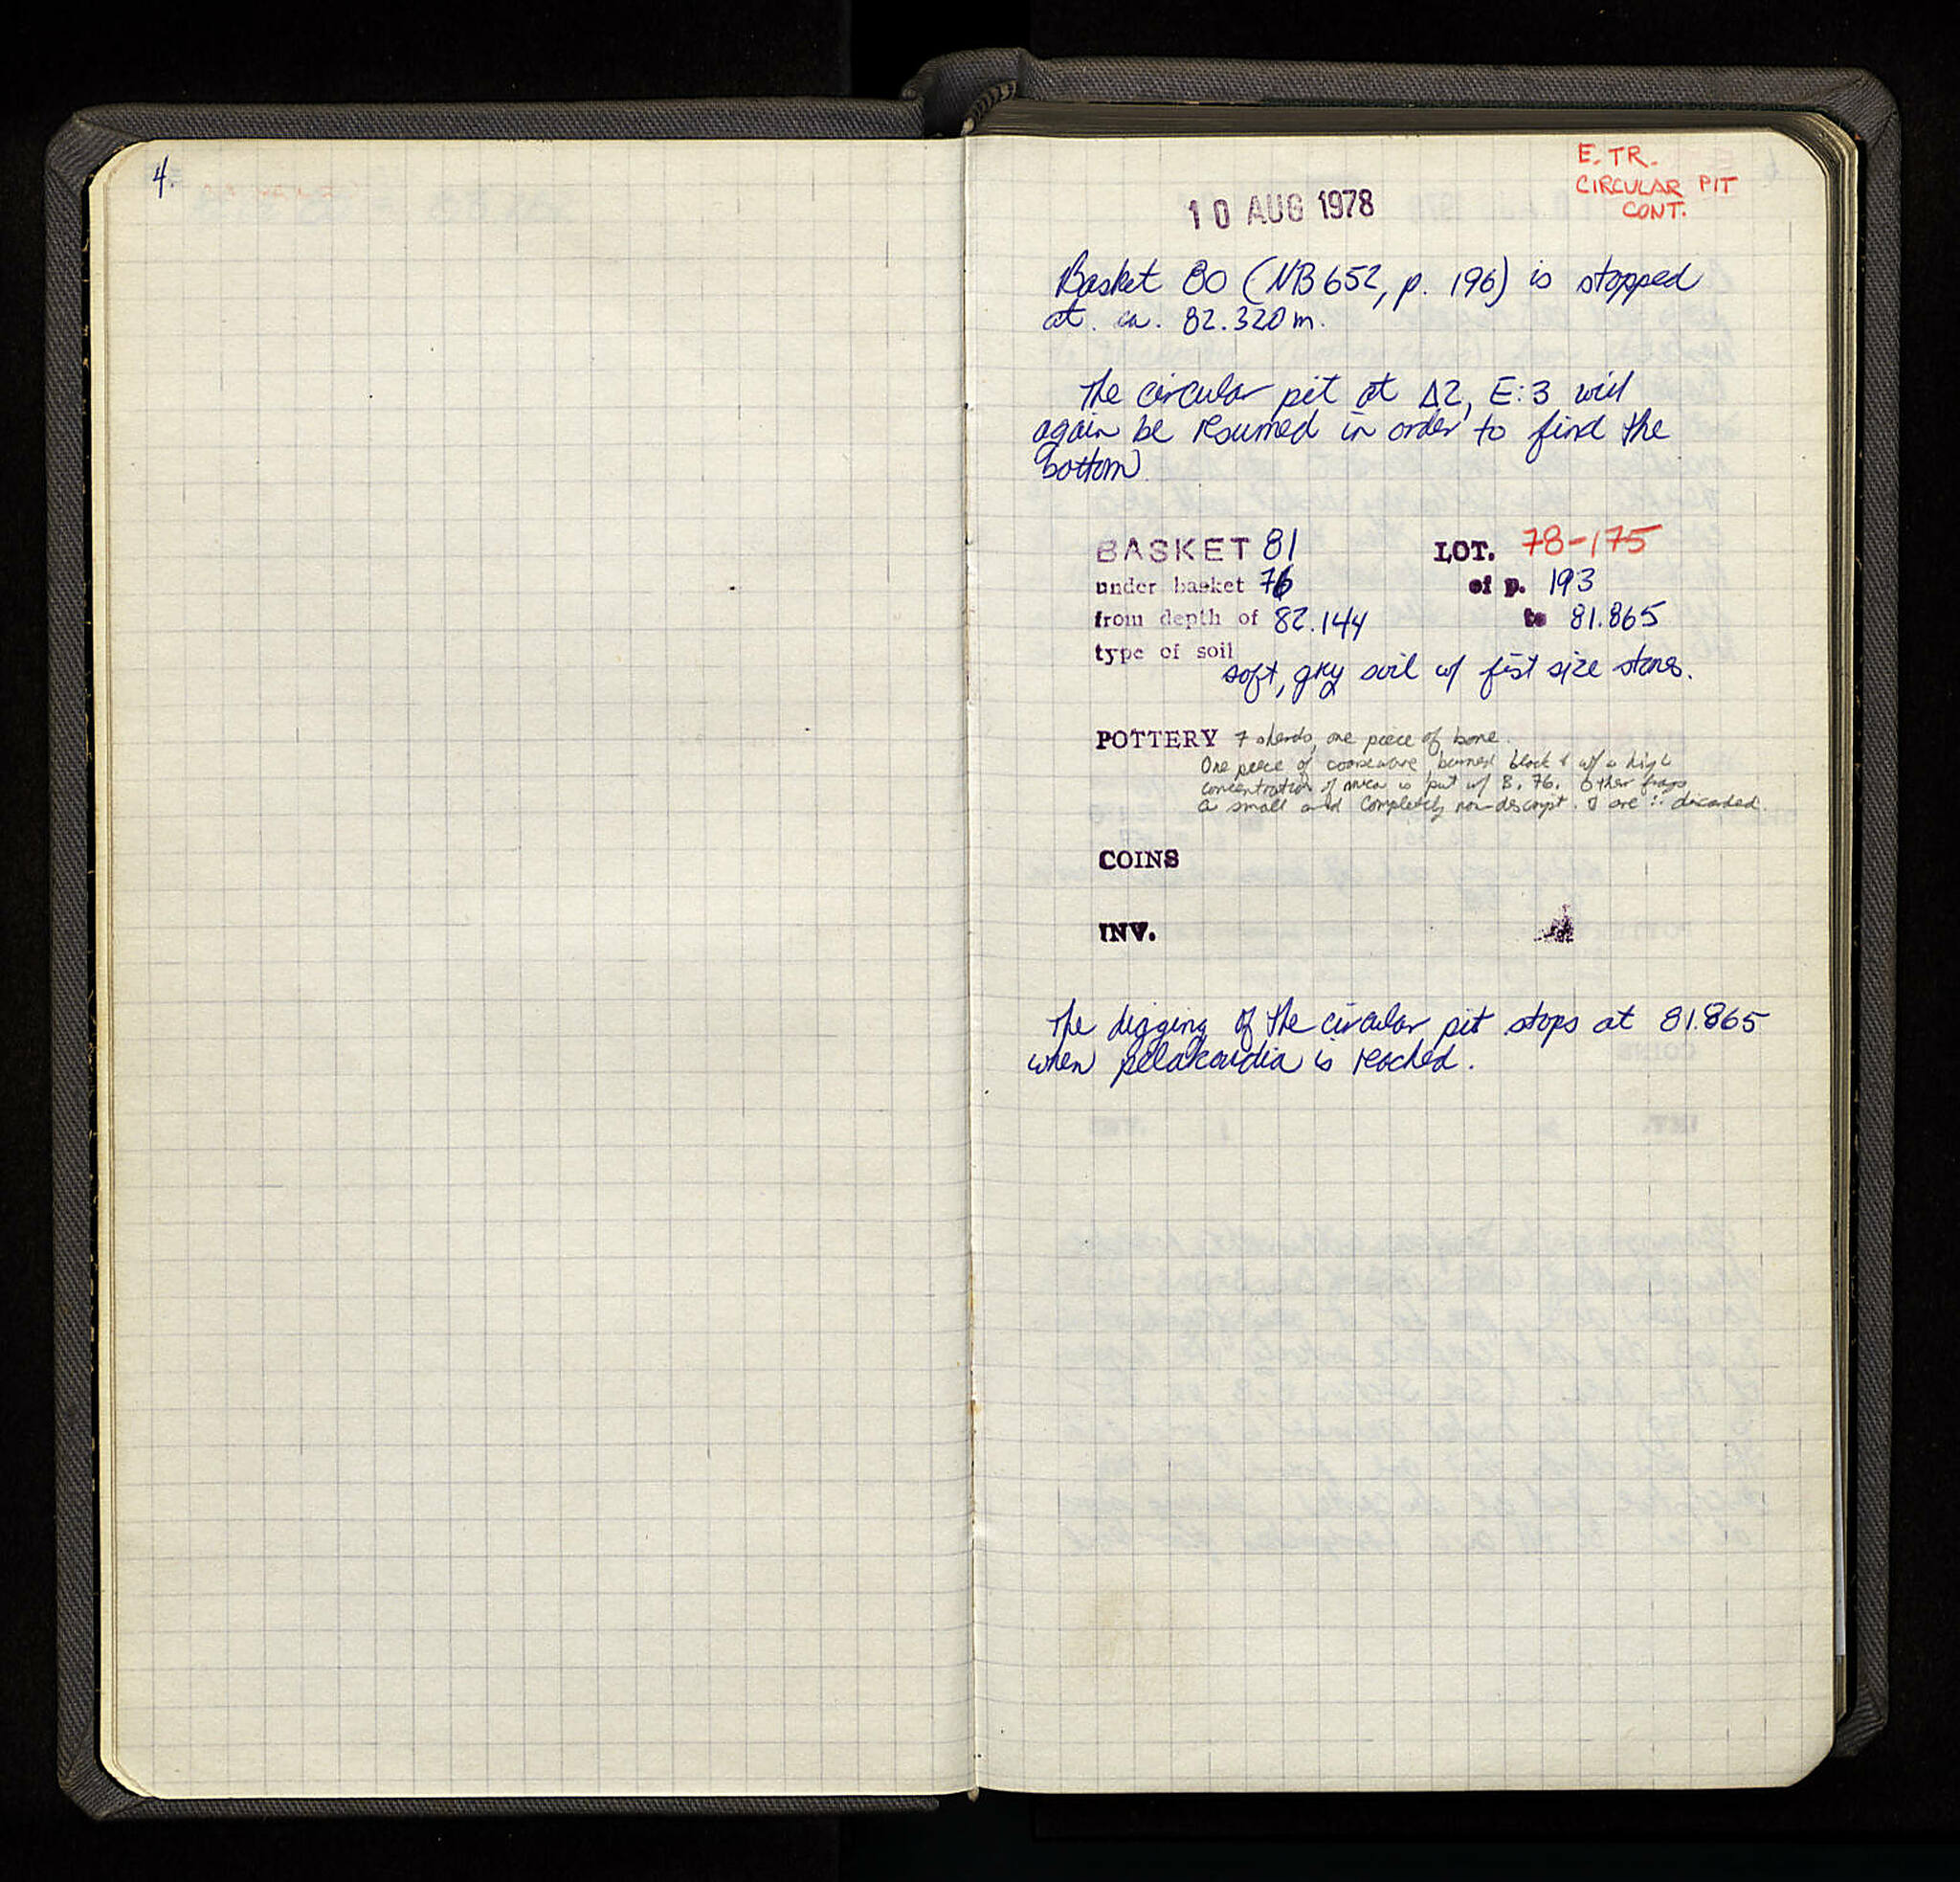 4.
E. TR.
CIRCULAR PIT
CONT.
10 AUG 1978
Basket 80 (NB 652, p. 196) is stopped
at ca. 82.320 m.
The circular pit at Δ2, E:3 will
again be resumed in order to find the
bottom
BASKET 81 LOT. 78-175
under basket 76 of p. 193
from depth of 82.144 to 81.865
type of soil
soft, gry soil w/ fist size stones.
POTTERY 7 sherds, one piece of bone.
One piece of coarseware burned black & w/ a high
concentration of mica is put w/ B. 76. Other frags
a small and completely non-descript. & are ∴ discarded.
COINS
INV.
The digging of the circular pit stops at 81.865
when pelakaidia is reached.